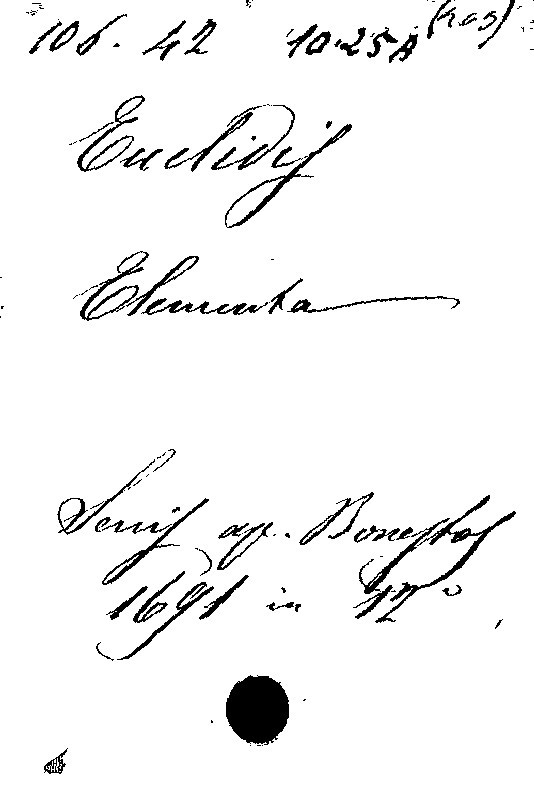 106. 42 10.25A (Ras)
Euclidis
Elementa
Senis ap. Bonettos
1691 in 12°